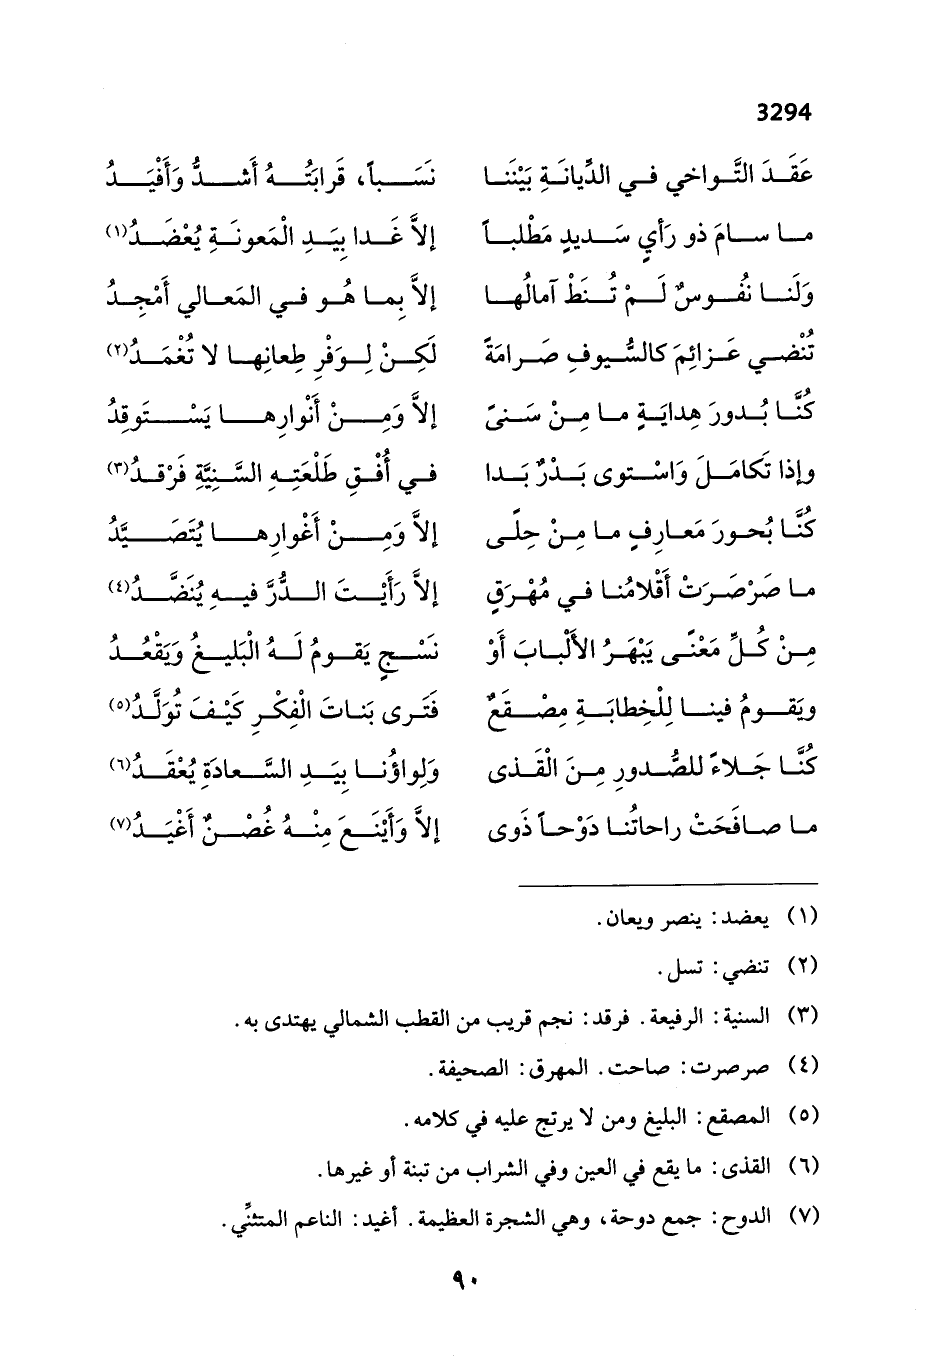 3294
عَقَدَ التَّواخي في الدِّيانَةِ بَيْنَنا نَسَباً، قَرابَتُهُ أَشدُّ وَأَفْيَدُ
ما سامَ ذو رَأيٍ سَديدٍ مَطْلباً إلاَّ غَدا بِيَدِ الْمَعونَةِ يُعْضَدُ(١)
وَلَنا نُفُوسٌ لَمْ تُنَطْ آمالُها إلاَّ بِما هُو في المَعالي أمْجَدُ
تُنْضي عَزائِمَ كالسُّيوفِ صَرامَةً لَكِنْ لِوَفْرِ طِعانِها لا تُغْمَدُ(٢)
كُنَّا بُدورَ هِدايَةٍ ما مِنْ سَنىً إلاَّ وَمِنْ أَنْوارِها يَسْتَوقِدُ
وإذا تَكامَلَ وَاسْتوى بَدْرٌ بَدا في أُفْقِ طَلْعَتِهِ السَّنِيَّةِ فَرْقدُ(٣)
كُنَّا بُحورَ مَعارِفٍ ما مِنْ حِلًى إلاَّ وَمِنْ أَغْوارِها يُتَصَيَّدُ
ما صَرْصَرَتْ أَقْلامُنا في مُهْرَقٍ إلاَّ رَأَيْتَ الدُّرَّ فيهِ يُنَضَّدُ(٤)
مِنْ كُلِّ مَعْنًى يَبْهَرُ الأَلْبابَ أَوْ نَسْجٍ يَقومُ لَهُ الْبَليغُ وَيَقْعُدُ
ويَقومُ فينا لِلْخِطابَةِ مِصْقَعٌ فَتَرى بَناتَ الْفِكْرِ كَيْفَ تُوَلَّدُ(٥)
كُنَّا جَلاءً للصُّدورِ مِنَ الْقَذى وَلِواؤُنا بِيَدِ السَّعادَةِ يُعْقَدُ(٦)
ما صافَحَتْ راحاتُنا دَوْحاً ذَوى إلاَّ وَأَيْنَعَ مِنْهُ غُصْنٌ أَغْيَدُ(٧)
(١) يعضد: ينصر ويعان.
(٢) تنضي: تسل.
(٣) السنية: الرفيعة. فرقد: نجم قريب من القطب الشمالي يهتدى به.
(٤) صرصرت: صاحت. المهرق: الصحيفة.
(٥) المصقع: البليغ ومن لا يرتج عليه في كلامه.
(٦) القذى: ما يقع في العين وفي الشراب من تبنة أو غيرها.
(٧) الدوح: جمع دوحة، وهي الشجرة العظيمة. أغيد: الناعم المتثنِّي.
٩٠